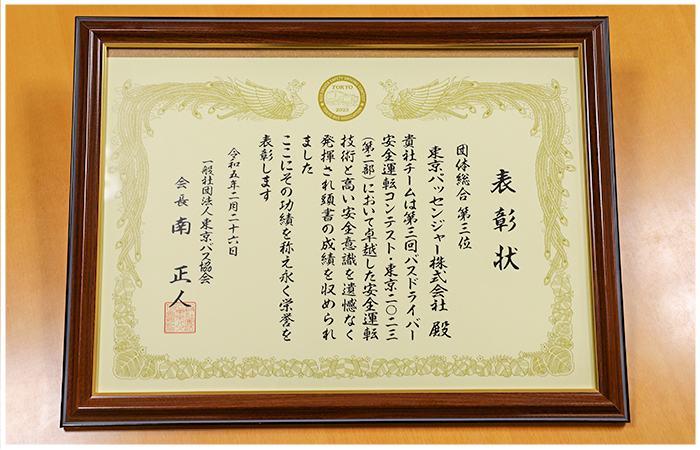 表彰状
団体総合 第三位
東京パッセンジャー株式会社 殿
貴社チームは第三回バスドライバー
安全運転コンテスト・東京二〇二三
(第二部)において卓越した安全運転
技術と高い安全意識を遺憾なく
発揮され頭書の成績を収められ
ました
ここにその功績を称え永く栄誉を
表彰します
令和五年二月二十六日
一般社団法人東京バス協会
会長 南 正人
TOKYO
2023